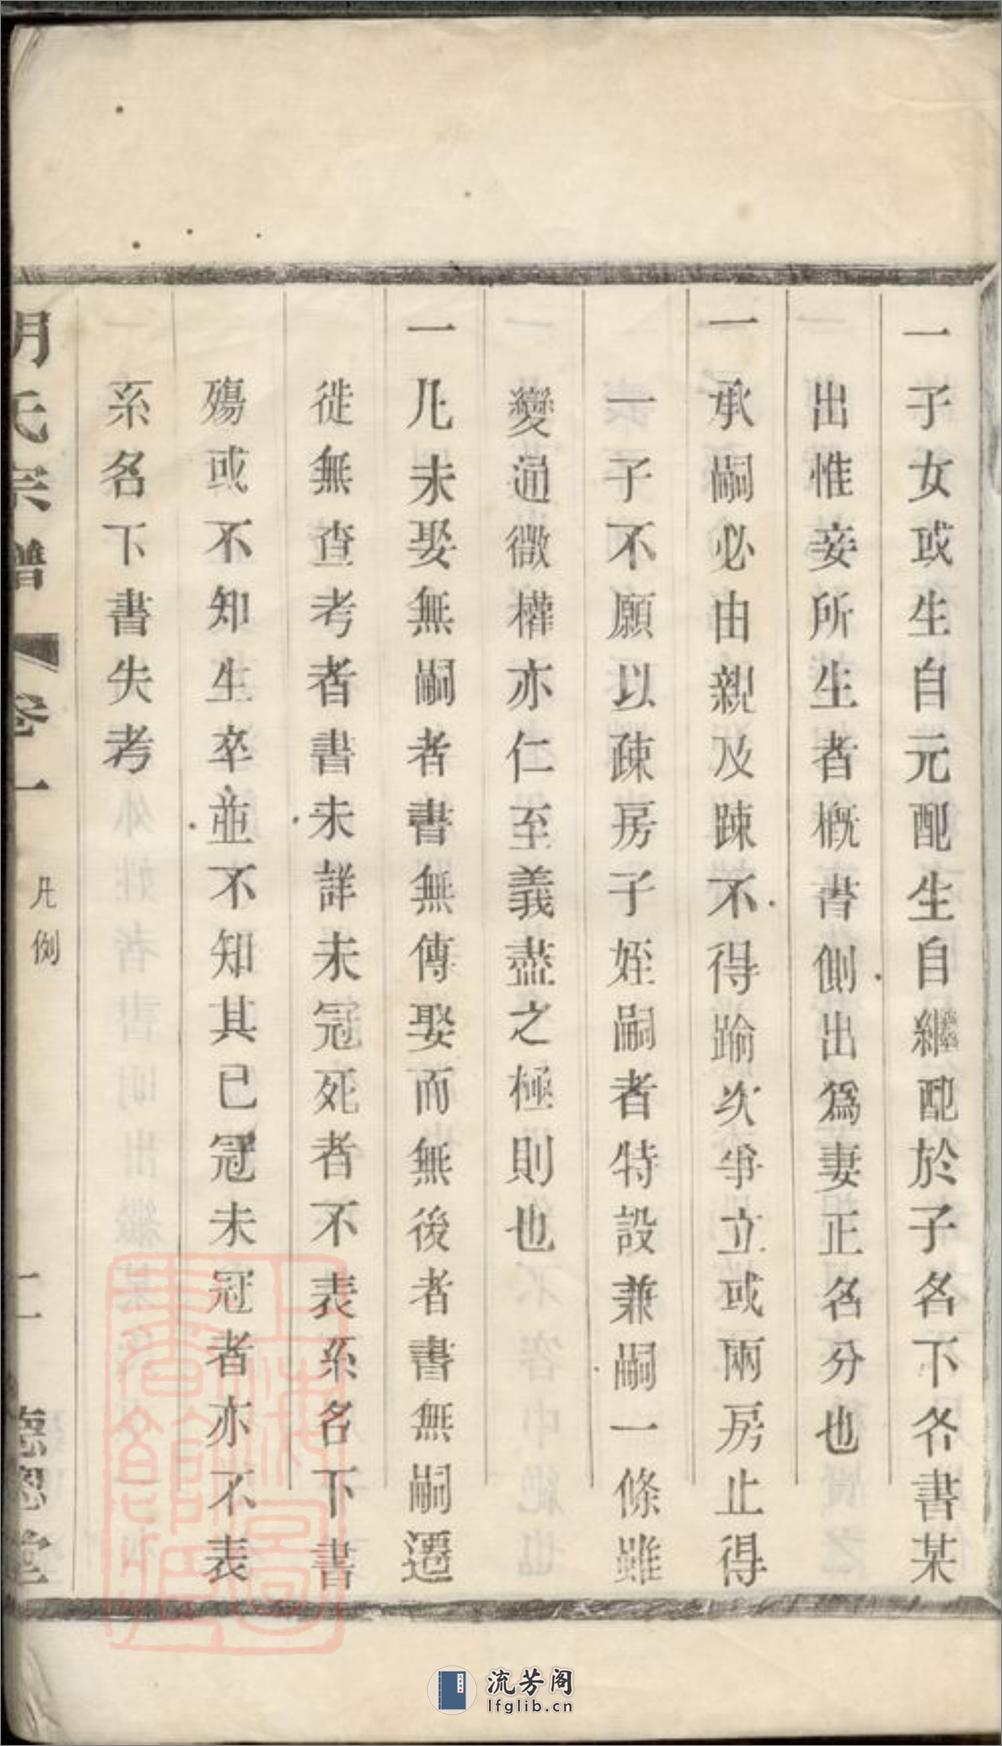 一子女或生自元配生自繼配於子名下各書某
出惟妾所生者槪書側出爲妻正名分也
一承嗣必由親及踈不得踰次爭立或兩房止得
一子不願以疎房子姪嗣者特設兼嗣一條雖
變通微權亦仁至義盡之極則也
一凡未娶無嗣者書無傳娶而無後者書無嗣遷
徙無查考者書未詳未冠死者不表系名下書
殤或不知生卒並不知其已冠未冠者亦不表
系名下書失考
氏宗譜 卷一 凡例 二 堂
流芳阁
lfglib.cn